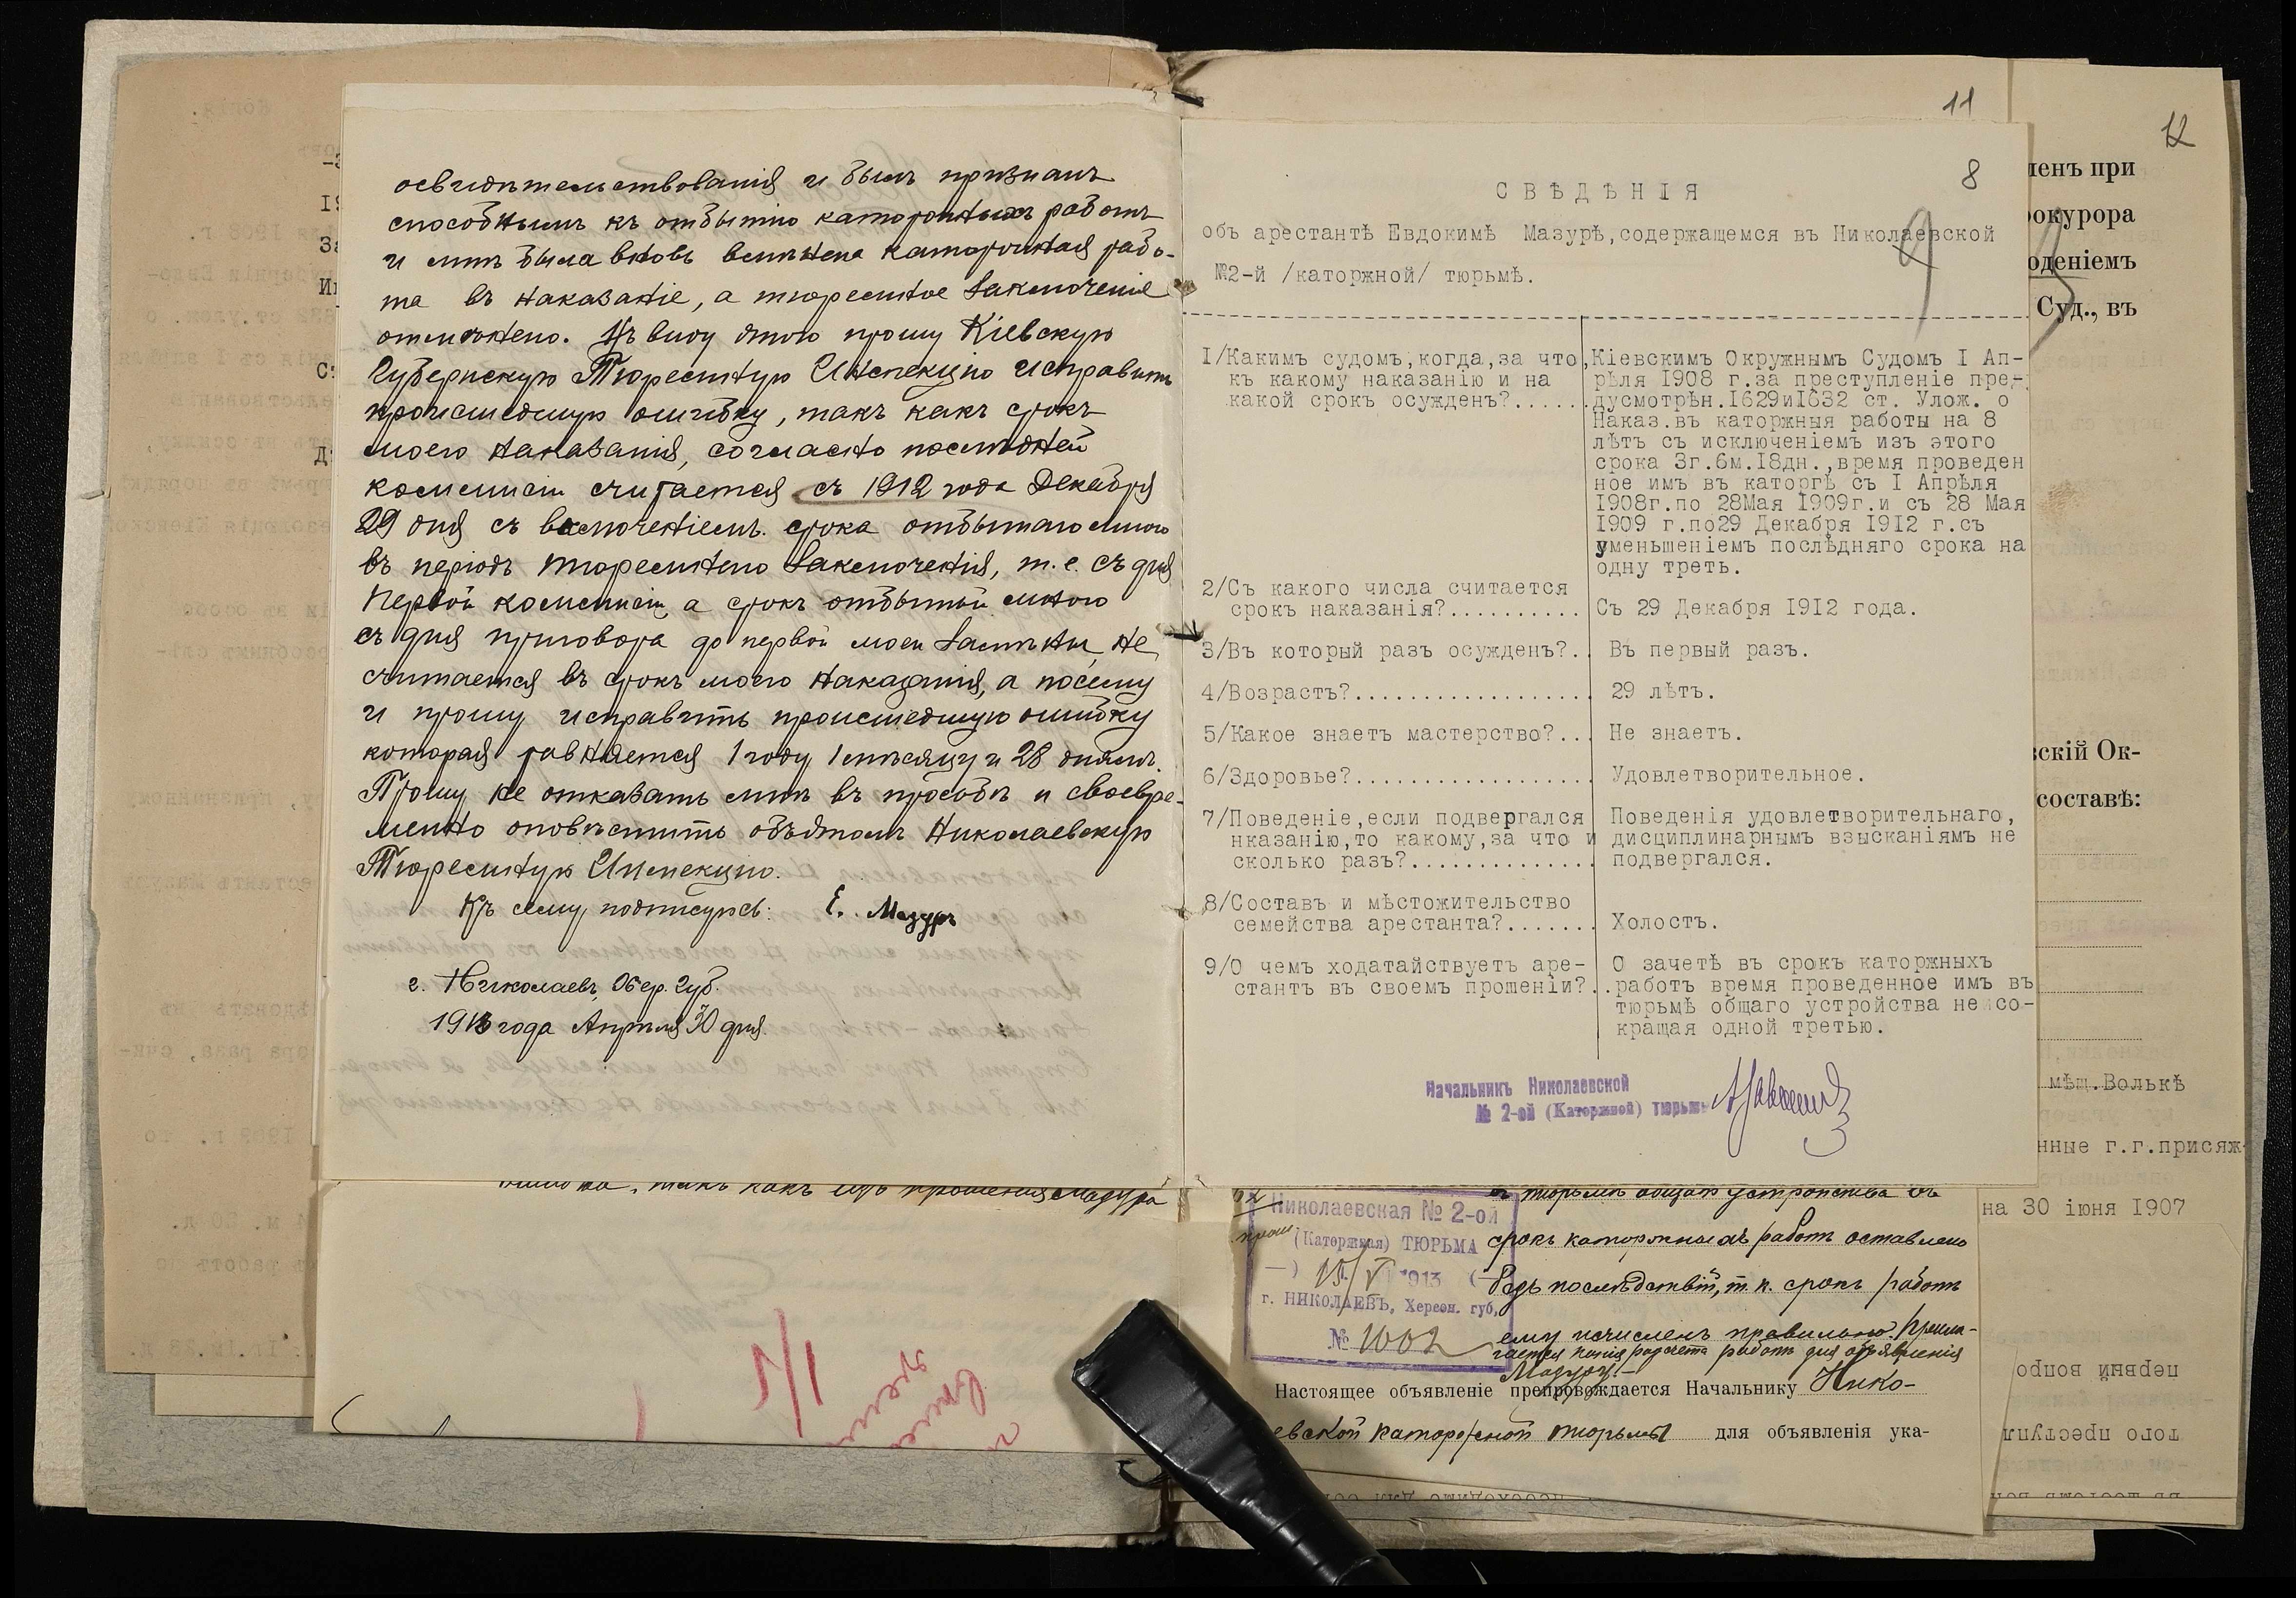 освидѣтельствованія и былъ признанъ
способнымъ къ отбытію каторжныхъ работъ
и мнѣ была вновь вмѣнена каторжная рабо-
та въ наказаніе, а тюремное заключеніе
отмѣнено. Въ виду этого прошу Кіевскую
Губернскую Тюремную Инспекцію исправить
происшедшую ошибку, такъ какъ срокъ
моего наказанія, согласно послѣдней
комиссіи считается съ 1912 года Декабря
29 дня съ включеніемъ срока отбытаго мною
въ періодъ тюремнаго заключенія, т.е. съ дня
первой комиссіи, а срокъ отбытый мною
съ дня приговора до первой моей замѣны, не
считается въ срокъ моего наказанія, а посему
и прошу исправить происшедшую ошибку
которая равняется 1 году 1 мѣсяцу и 28 днямъ.
Прошу не отказать мнѣ въ просьбѣ и своевре-
менно оповѣстить объ этомъ Николаевскую
Тюремную Инспекцію.
Къ сему подписуюсь: Е. Мазуръ
г. Николаевъ, Хер. Губ.
1913 года Апрѣля 30 дня.
ошибка, такъ какъ изъ прошенія Мазура
11
8
СВѢДѢНІЯ
объ арестантѣ Евдокимѣ Мазурѣ,содержащемся въ Николаевской
№2-й /каторжной/ тюрьмѣ.
I/Какимъ судомъ,когда,за что,
къ какому наказанію и на
какой срокъ осужденъ?......
Кіевскимъ Окружнымъ Судомъ I Ап-
рѣля I908 г.за преступленіе пре-
дусмотрѣн.I629иI632 ст. Улож. о
Наказ.въ каторжныя работы на 8
лѣтъ съ исключеніемъ изъ этого
срока 3г.6м.I8дн.,время проведен
ное имъ въ каторгѣ съ I Апрѣля
I908г.по 28Мая I909г.и съ 28 Мая
I909 г.по29 Декабря I9I2 г.съ
уменьшеніемъ послѣдняго срока на
одну треть.
2/Съ какого числа считается
срокъ наказанія?..........
Съ 29 Декабря I9I2 года.
3/Въ который разъ осужденъ?..
Въ первый разъ.
4/Возрастъ?...................
29 лѣтъ.
5/Какое знаетъ мастерство?...
Не знаетъ.
6/Здоровье?...................
Удовлетворительное.
7/Поведеніе,если подвергался
нказанію,то какому,за что и
сколько разъ?...............
Поведенія удовлетворительнаго,
дисциплинарнымъ взысканіямъ не
подвергался.
8/Составъ и мѣстожительство
семейства арестанта?.......
Холостъ.
9/О чемъ ходатайствуетъ аре-
стантъ въ своемъ прошеніи?..
О зачетѣ въ срокъ каторжныхъ
работъ время проведенное имъ въ
тюрьмѣ общаго устройства несо-
кращая одной третью.
Начальникъ Николаевской
№ 2-ой (Каторжной) тюрьмы
Николаевская № 2-ой
(Каторжная) ТЮРЬМА
15/V 1913
г. НИКОЛАЕВЪ, Херсон. губ.
№ 1002
въ тюрьмѣ общаго устройства въ
срокъ каторжныхъ работъ оставлено
безъ послѣдствій, т.к. срокъ работъ
ему исчисленъ правильно. Прила-
гается копія разсчета работъ для объявленія
Мазуру.
Настоящее объявленіе препровождается Начальнику Нико-
евской каторжной тюрьмы для объявленія ука-
12
ленъ при
рокурора
оденіемъ
Суд., въ
скій Ок-
составѣ:
мѣщ.Волькѣ
нные г.г.присяж-
на 30 іюня I907